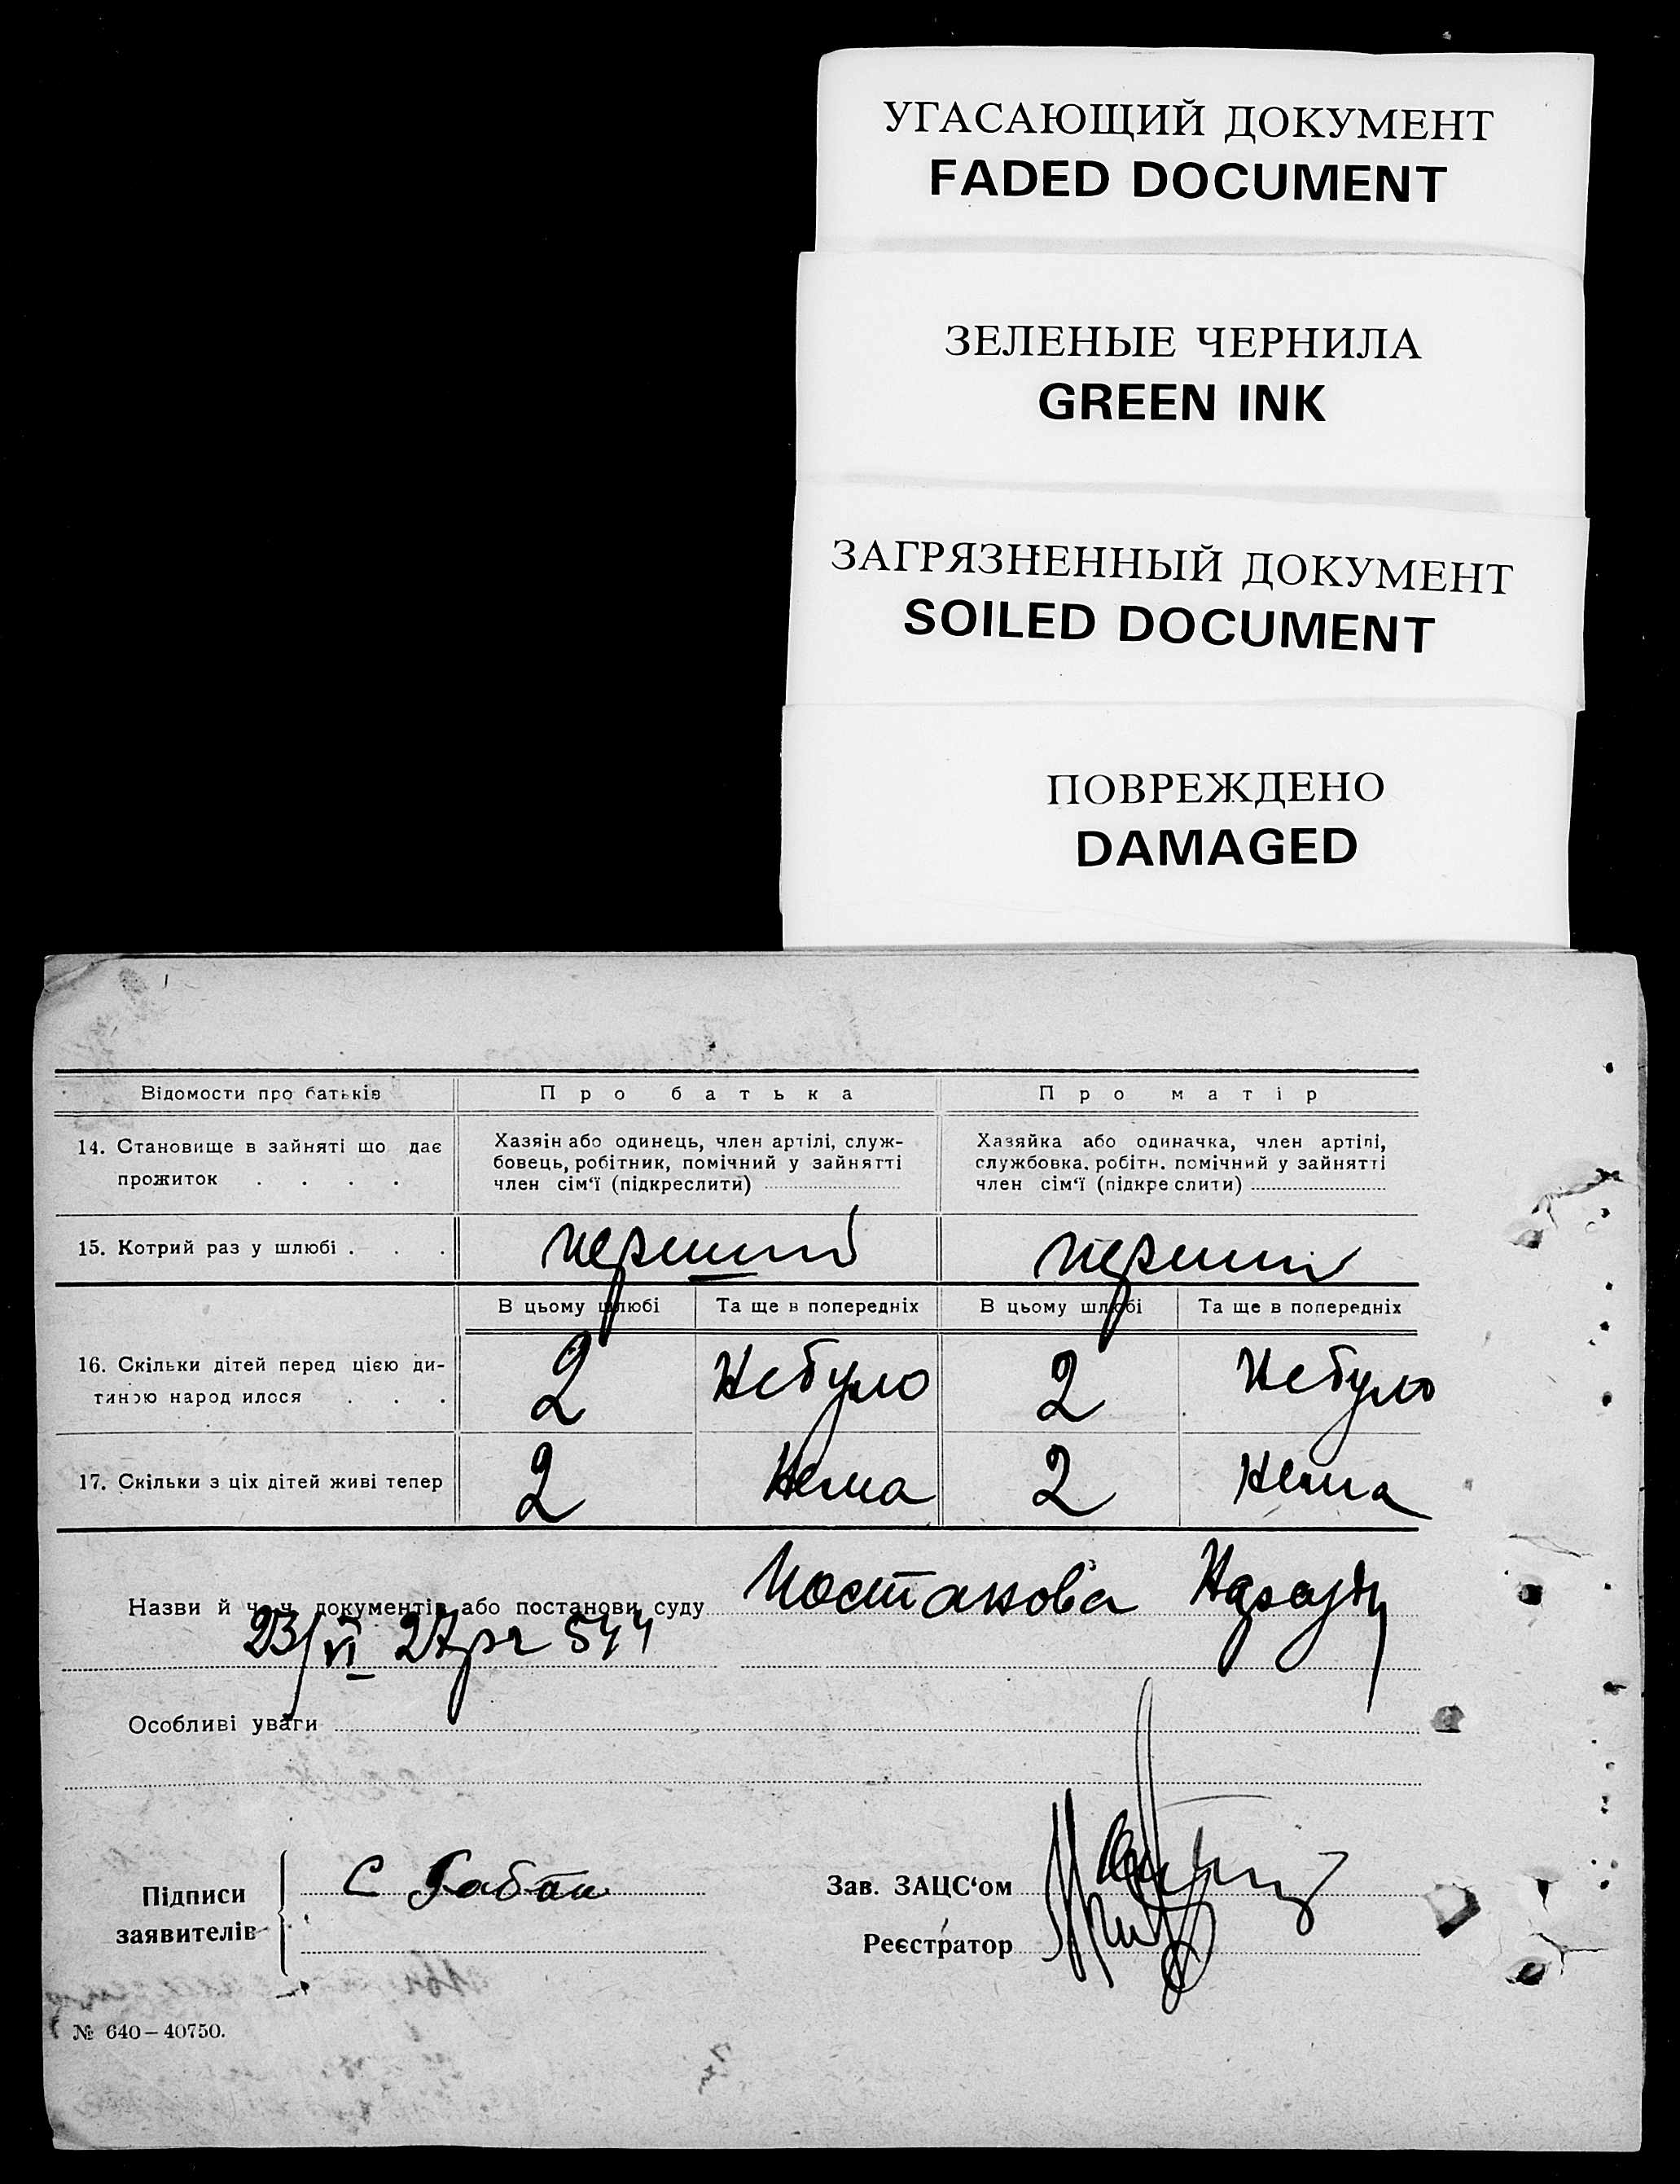 УГАСАЮЩИЙ ДОКУМЕНТ
FADED DOCUMENT
ЗЕЛЕНЫЕ ЧЕРНИЛА
GREEN INK
ЗАГРЯЗНЕННЫЙ ДОКУМЕНТ
SOILED DOCUMENT
ПОВРЕЖДЕНО
DAMAGED
Відомости про батьків Про батька Про матір
14. Становище в зайняті що дає прожиток . . . .
Хазяін або одинець, член артілі, служ-
бовець, робітник, помічний у зайнятті
член сім‘ї (підкреслити)
Хазяйка або одиначка, член артілі,
службовка, робітн. помічний у зайнятті
член сім‘ї (підкреслити)
15. Котрий раз у шлюбі . . . перший перший
В цьому шлюбі Та ще в попередніх В цьому шлюбі Та ще в попередніх
16. Скільки дітей перед цією ди-
тиною народилося . . . 2 Небуло 2 Небуло
17. Скільки з ціх дітей живі тепер 2 Нема 2 Нема
Назви й ч. ч. документів або постанови суду Постанова Нарсуду
23/VI 27
Особливі уваги
Підписи
заявителів
С
Зав. ЗАЦС‘ом
Реєстратор
№ 640–40750.